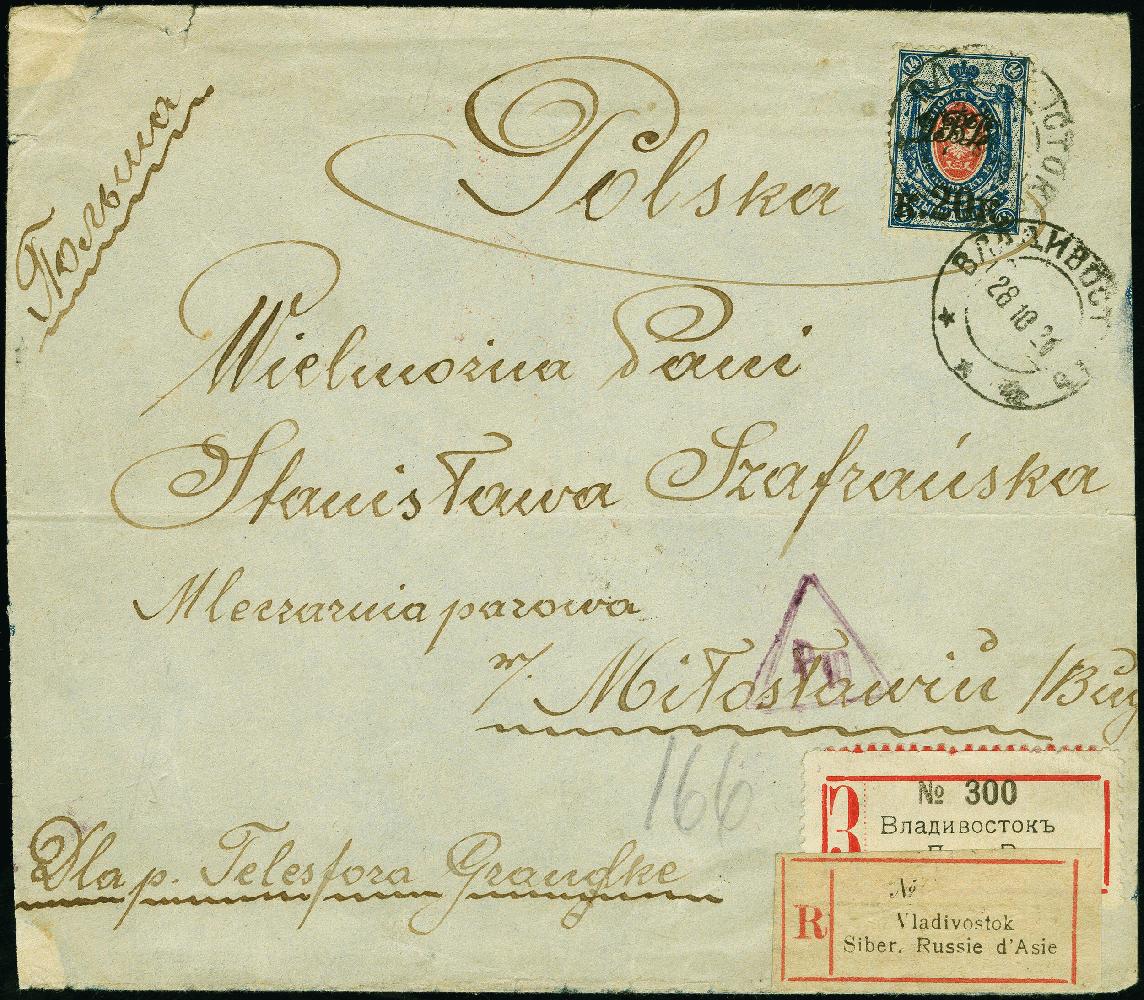 Польша
Polska
14 14
к. 20 к.
ВЛАДИВОСТ
28 10 20
Wielmożna Pani
Stanisława Szafrańska
Mleczarnia parowa
w/. Miłosławiu /Bug
166
Dla p. Telesfora
№ 300
З Владивостокъ
№
R Vladivostok
Siber. Russie d'Asie